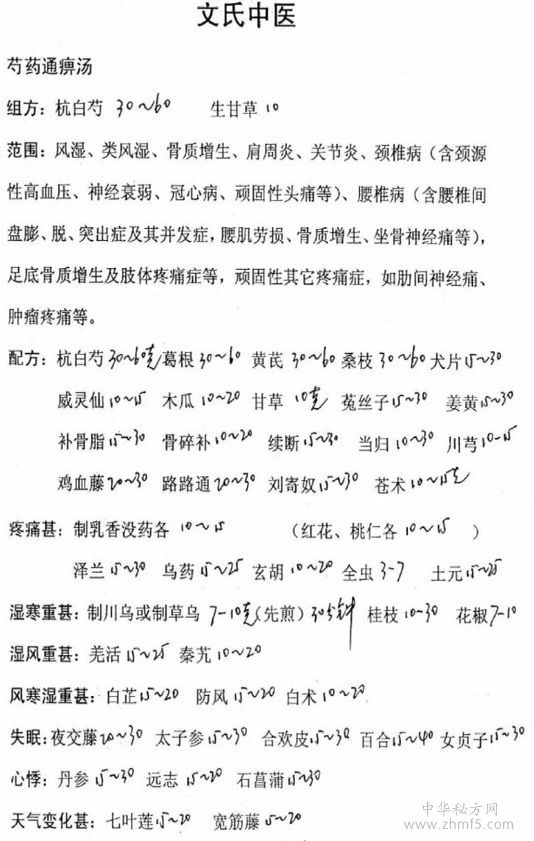 文氏中医
芍药通痹汤
组方：杭白芍 30~60 生甘草 10
范围：风湿、类风湿、骨质增生、肩周炎、关节炎、颈椎病（含颈源
性高血压、神经衰弱、冠心病、顽固性头痛等）、腰椎病（含腰椎间
盘膨、脱、突出症及其并发症，腰肌劳损、骨质增生、坐骨神经痛等），
足底骨质增生及肢体疼痛症等，顽固性其它疼痛症，如肋间神经痛、
肿瘤疼痛等。
配方：杭白芍 30~60克 葛根 30~60 黄芪 30~60 桑枝 30~60 犬片 15~30
威灵仙 10~15 木瓜 10~20 甘草 10克 菟丝子 15~30 姜黄 15~30
补骨脂 15~30 骨碎补 10~20 续断 15~30 当归 10~30 川芎 10-15
鸡血藤 20~30 路路通 20~30 刘寄奴 15~30 苍术 10~15克
疼痛甚：制乳香没药各 10~15 （红花、桃仁各 10~15 ）
泽兰 15~30 乌药 15~25 玄胡 10~20 全虫 3-7 土元 15~25
湿寒重甚：制川乌或制草乌 7-10克（先煎）30分钟 桂枝 10-30 花椒 7-10
湿风重甚：羌活 15~25 秦艽 10~20
风寒湿重甚：白芷 15~20 防风 15~20 白术 10~20
失眠：夜交藤 20~30 太子参 15~30 合欢皮 15~30 百合 15~40 女贞子 15~30
心悸：丹参 15~30 远志 15~20 石菖蒲 15~30
天气变化甚：七叶莲 15~20 宽筋藤 15~20
中华秘方网
www.zhmf5.com